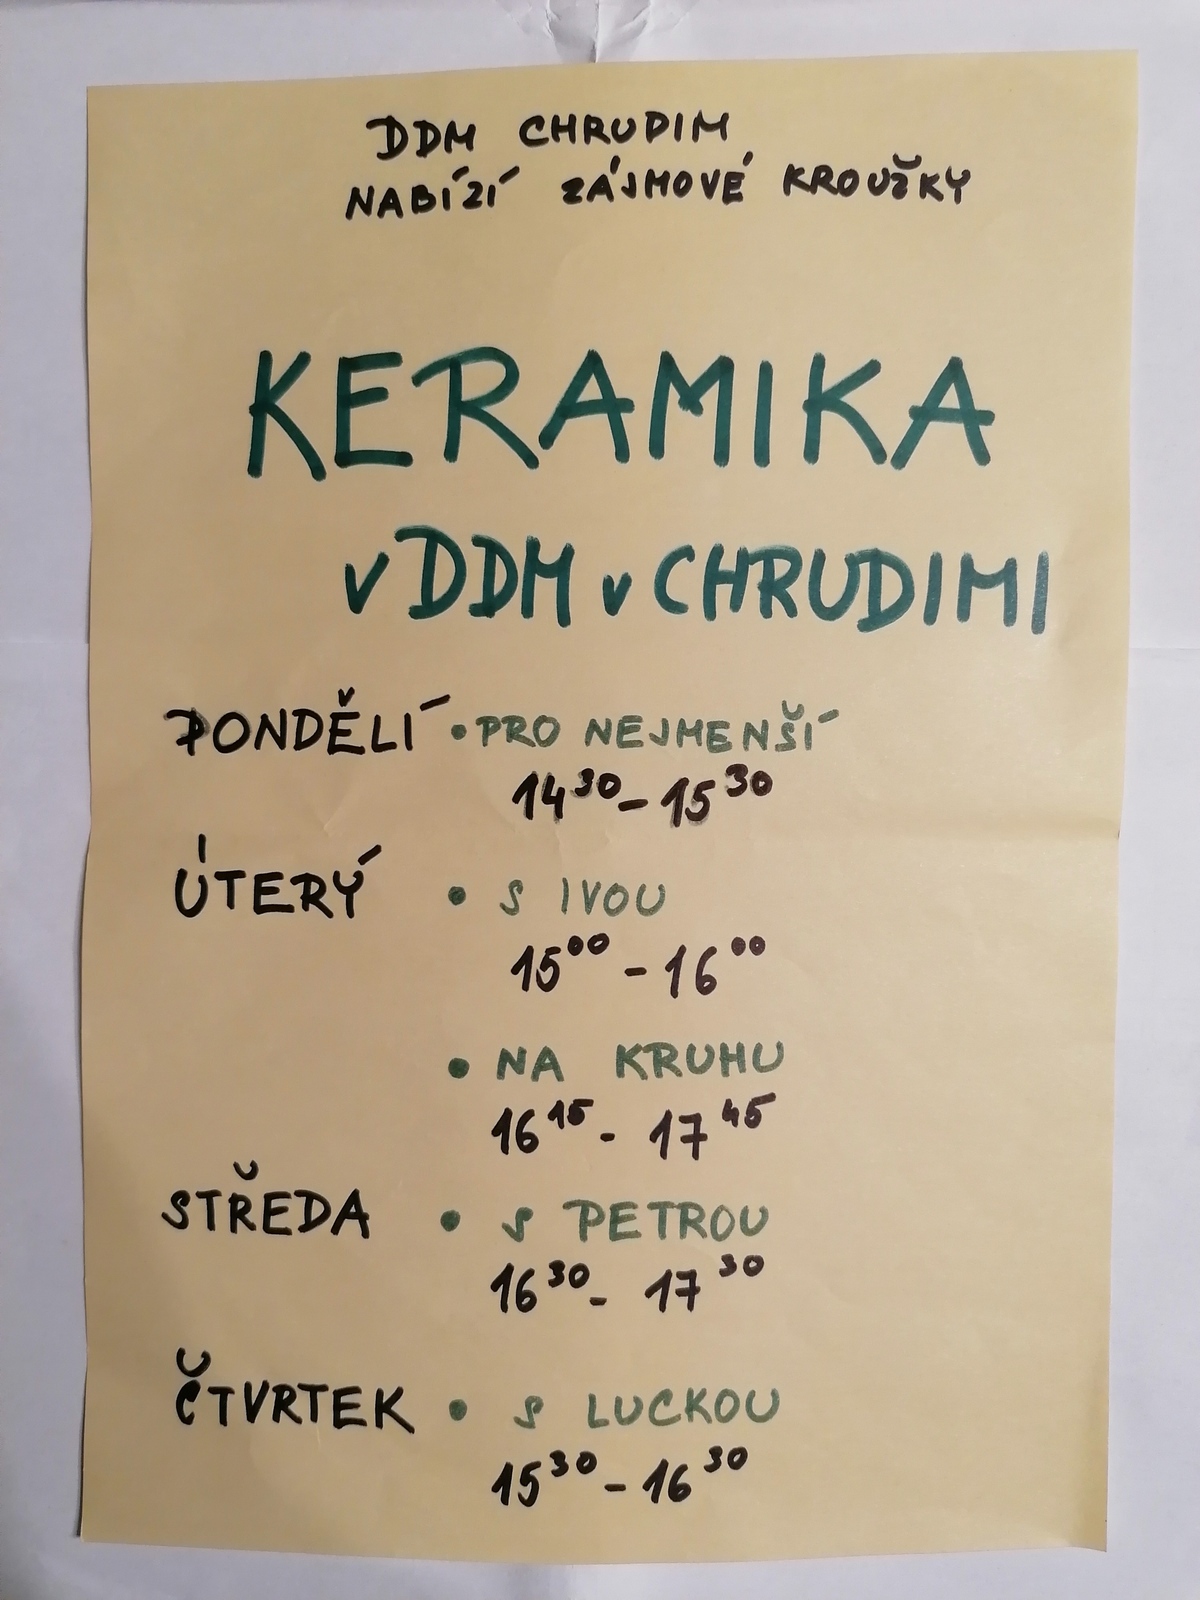 DDM CHRUDIM
NABÍZÍ ZÁJMOVÉ KROUŽKY
KERAMIKA
v DDM v CHRUDIMI
PONDĚLÍ • PRO NEJMENŠÍ
14³⁰ - 15³⁰
ÚTERÝ • S IVOU
15⁰⁰ - 16⁰⁰
• NA KRUHU
16¹⁵ - 17⁴⁵
STŘEDA • S PETROU
16³⁰ - 17³⁰
ČTVRTEK • S LUCKOU
15³⁰ - 16³⁰